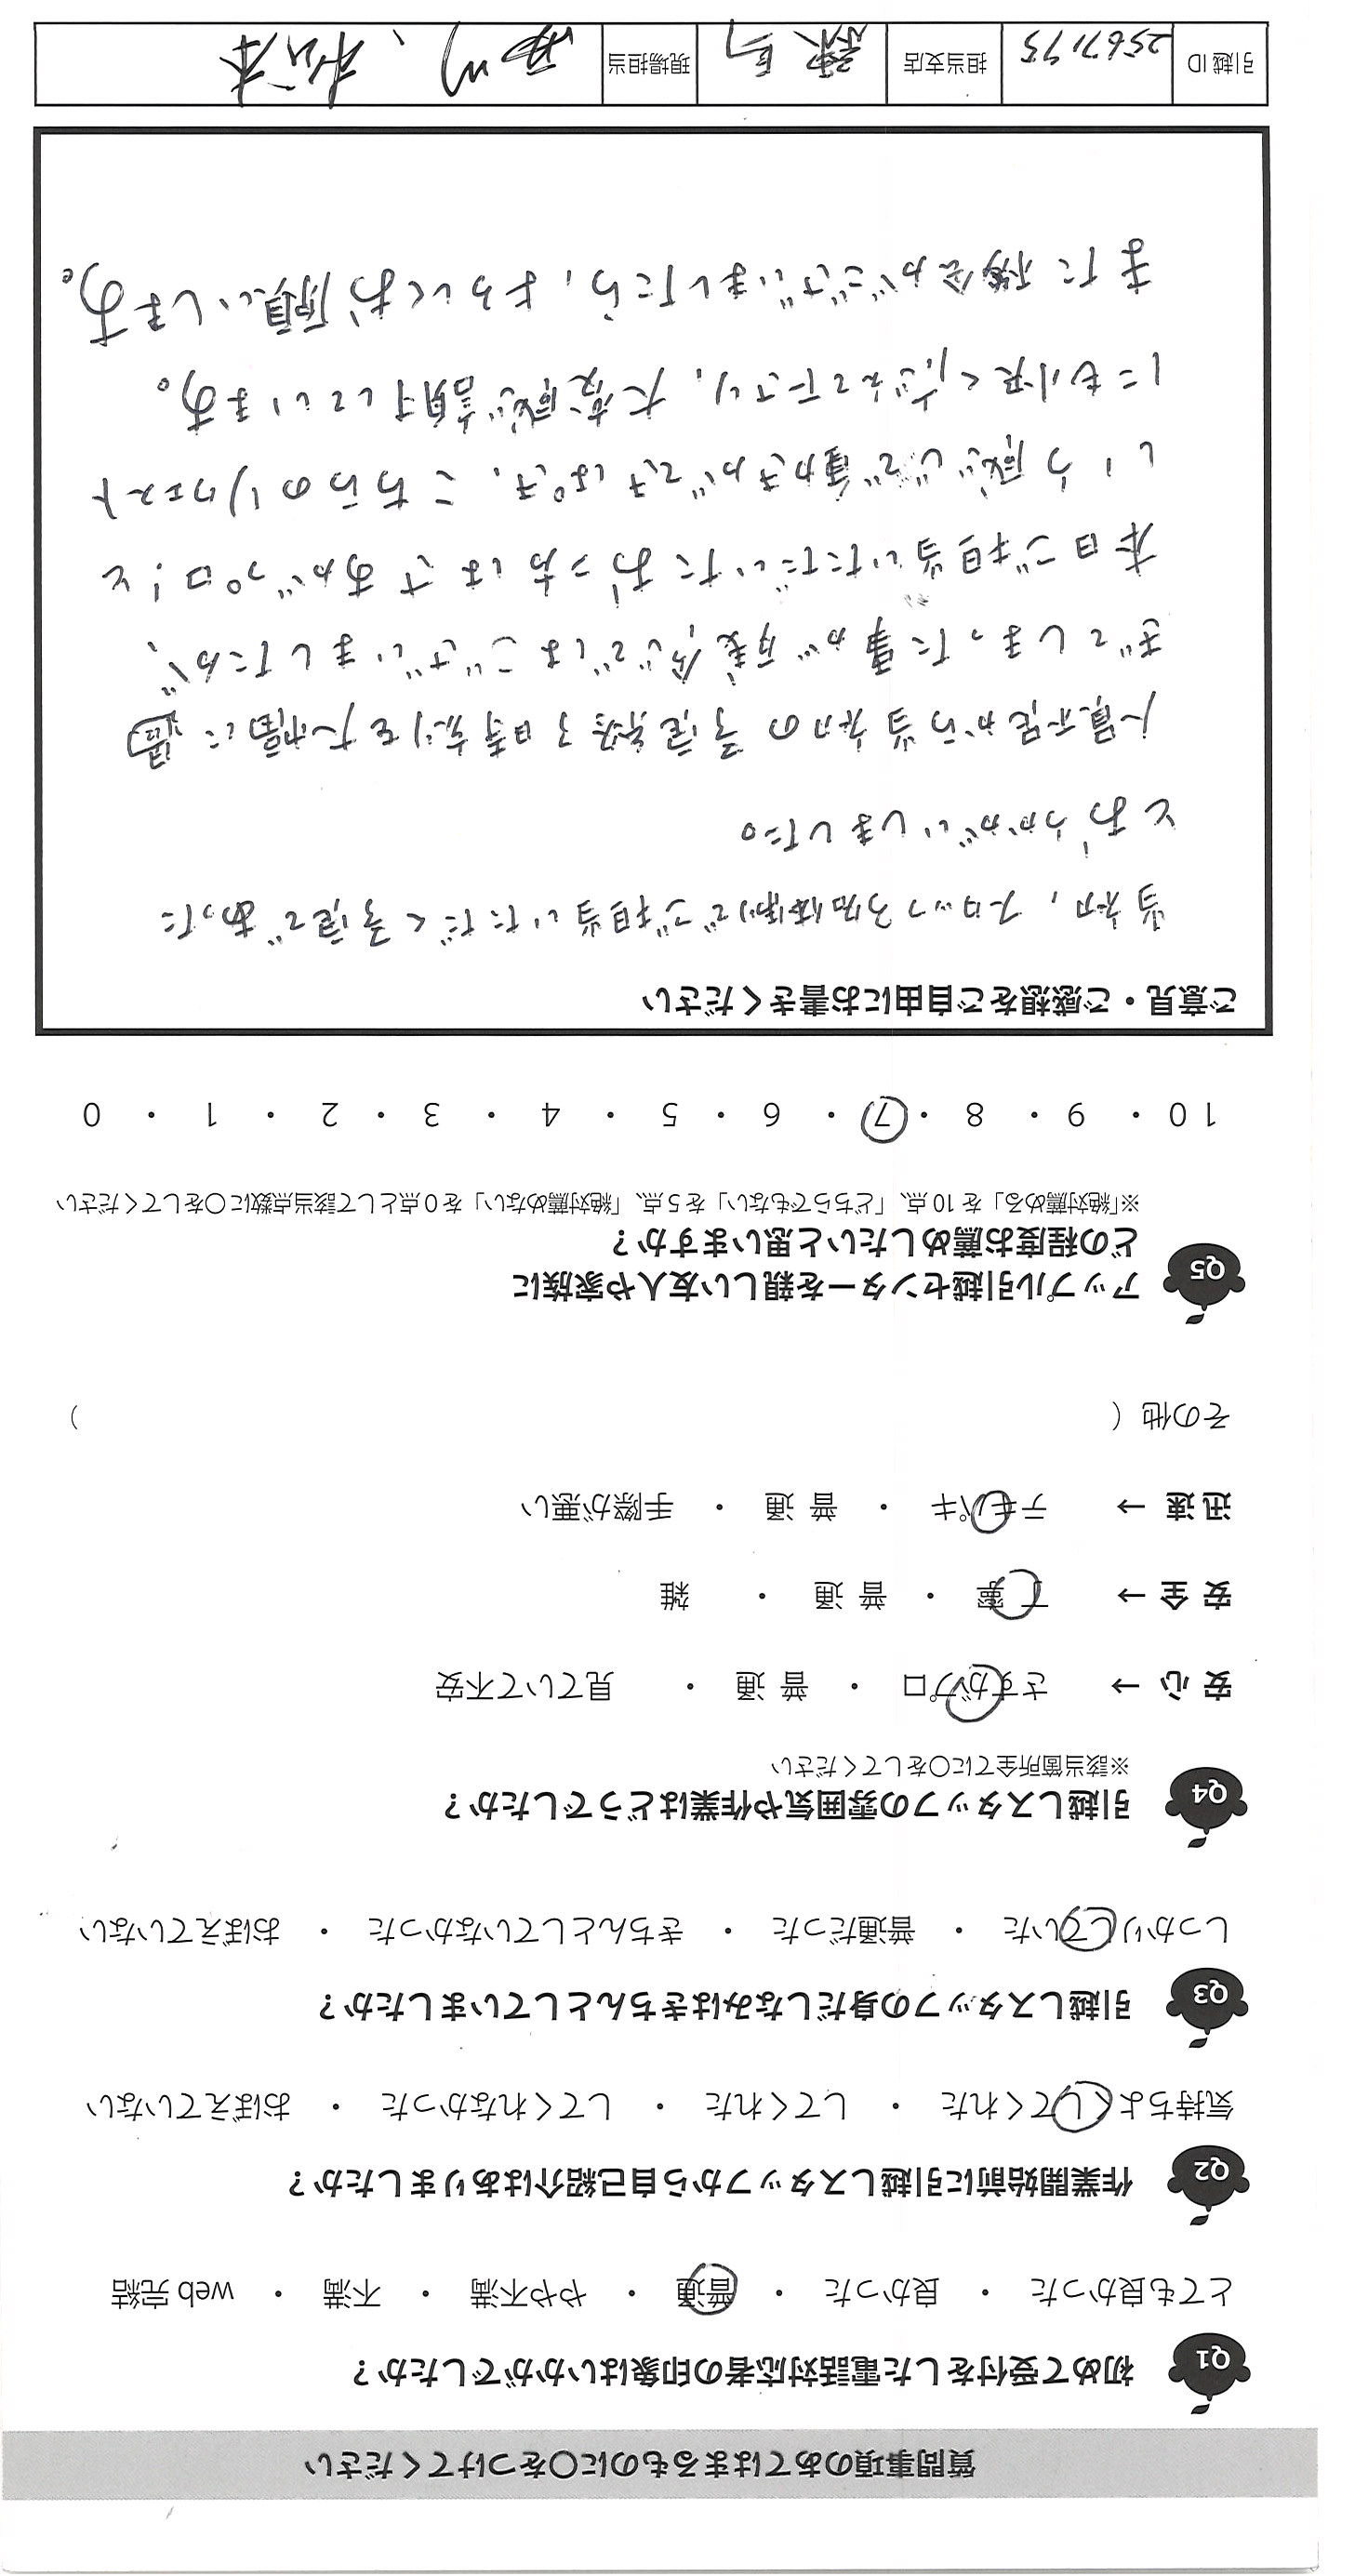 質問事項のあてはまるものに〇をつけてください
Q1 初めて受付をした電話対応者の印象はいかがでしたか？
とても良かった ・ 良かった ・ 普通 ・ やや不満 ・ 不満 ・ web 完結
Q2 作業開始前に引越しスタッフから自己紹介はありましたか？
気持ちよくしてくれた ・ してくれた ・ してくれなかった ・ おぼえていない
Q3 引越しスタッフの身だしなみはきちんとしていましたか？
しっかりしていた ・ 普通だった ・ きちんとしていなかった ・ おぼえていない
Q4 引越しスタッフの雰囲気や作業はどうでしたか？
※該当箇所全てに〇をしてください
安 心 → さすがプロ ・ 普 通 ・ 見ていて不安
安 全 → 丁 寧 ・ 普 通 ・ 雑
迅 速 → テキパキ ・ 普 通 ・ 手際が悪い
その他（ ）
Q5 アップル引越センターを親しい友人や家族に
どの程度お薦めしたいと思いますか？
※「絶対薦める」を 10 点、「どちらでもない」を 5 点、「絶対薦めない」を 0 点として該当点数に〇をしてください
10 ・ 9 ・ 8 ・ 7 ・ 6 ・ 5 ・ 4 ・ 3 ・ 2 ・ 1 ・ 0
ご意見・ご感想をご自由にお書きください
当初, スタッフ3名体制でご担当いただく予定であった
とおうかがいしました。
人員不足から当初の予定終了時刻を大幅に過
ぎてしまった事が残念ではございましたが、
本日ご担当いただいたお二方はさすがプロ！と
いう感じで動きがてきぱき、こちらのリクエスト
にも快く応えて下さり, 大変感謝しています。
また機会がございましたら, よろしくお願いします。
引越 ID 2567195 担当支店 練馬 現場担当 、松本